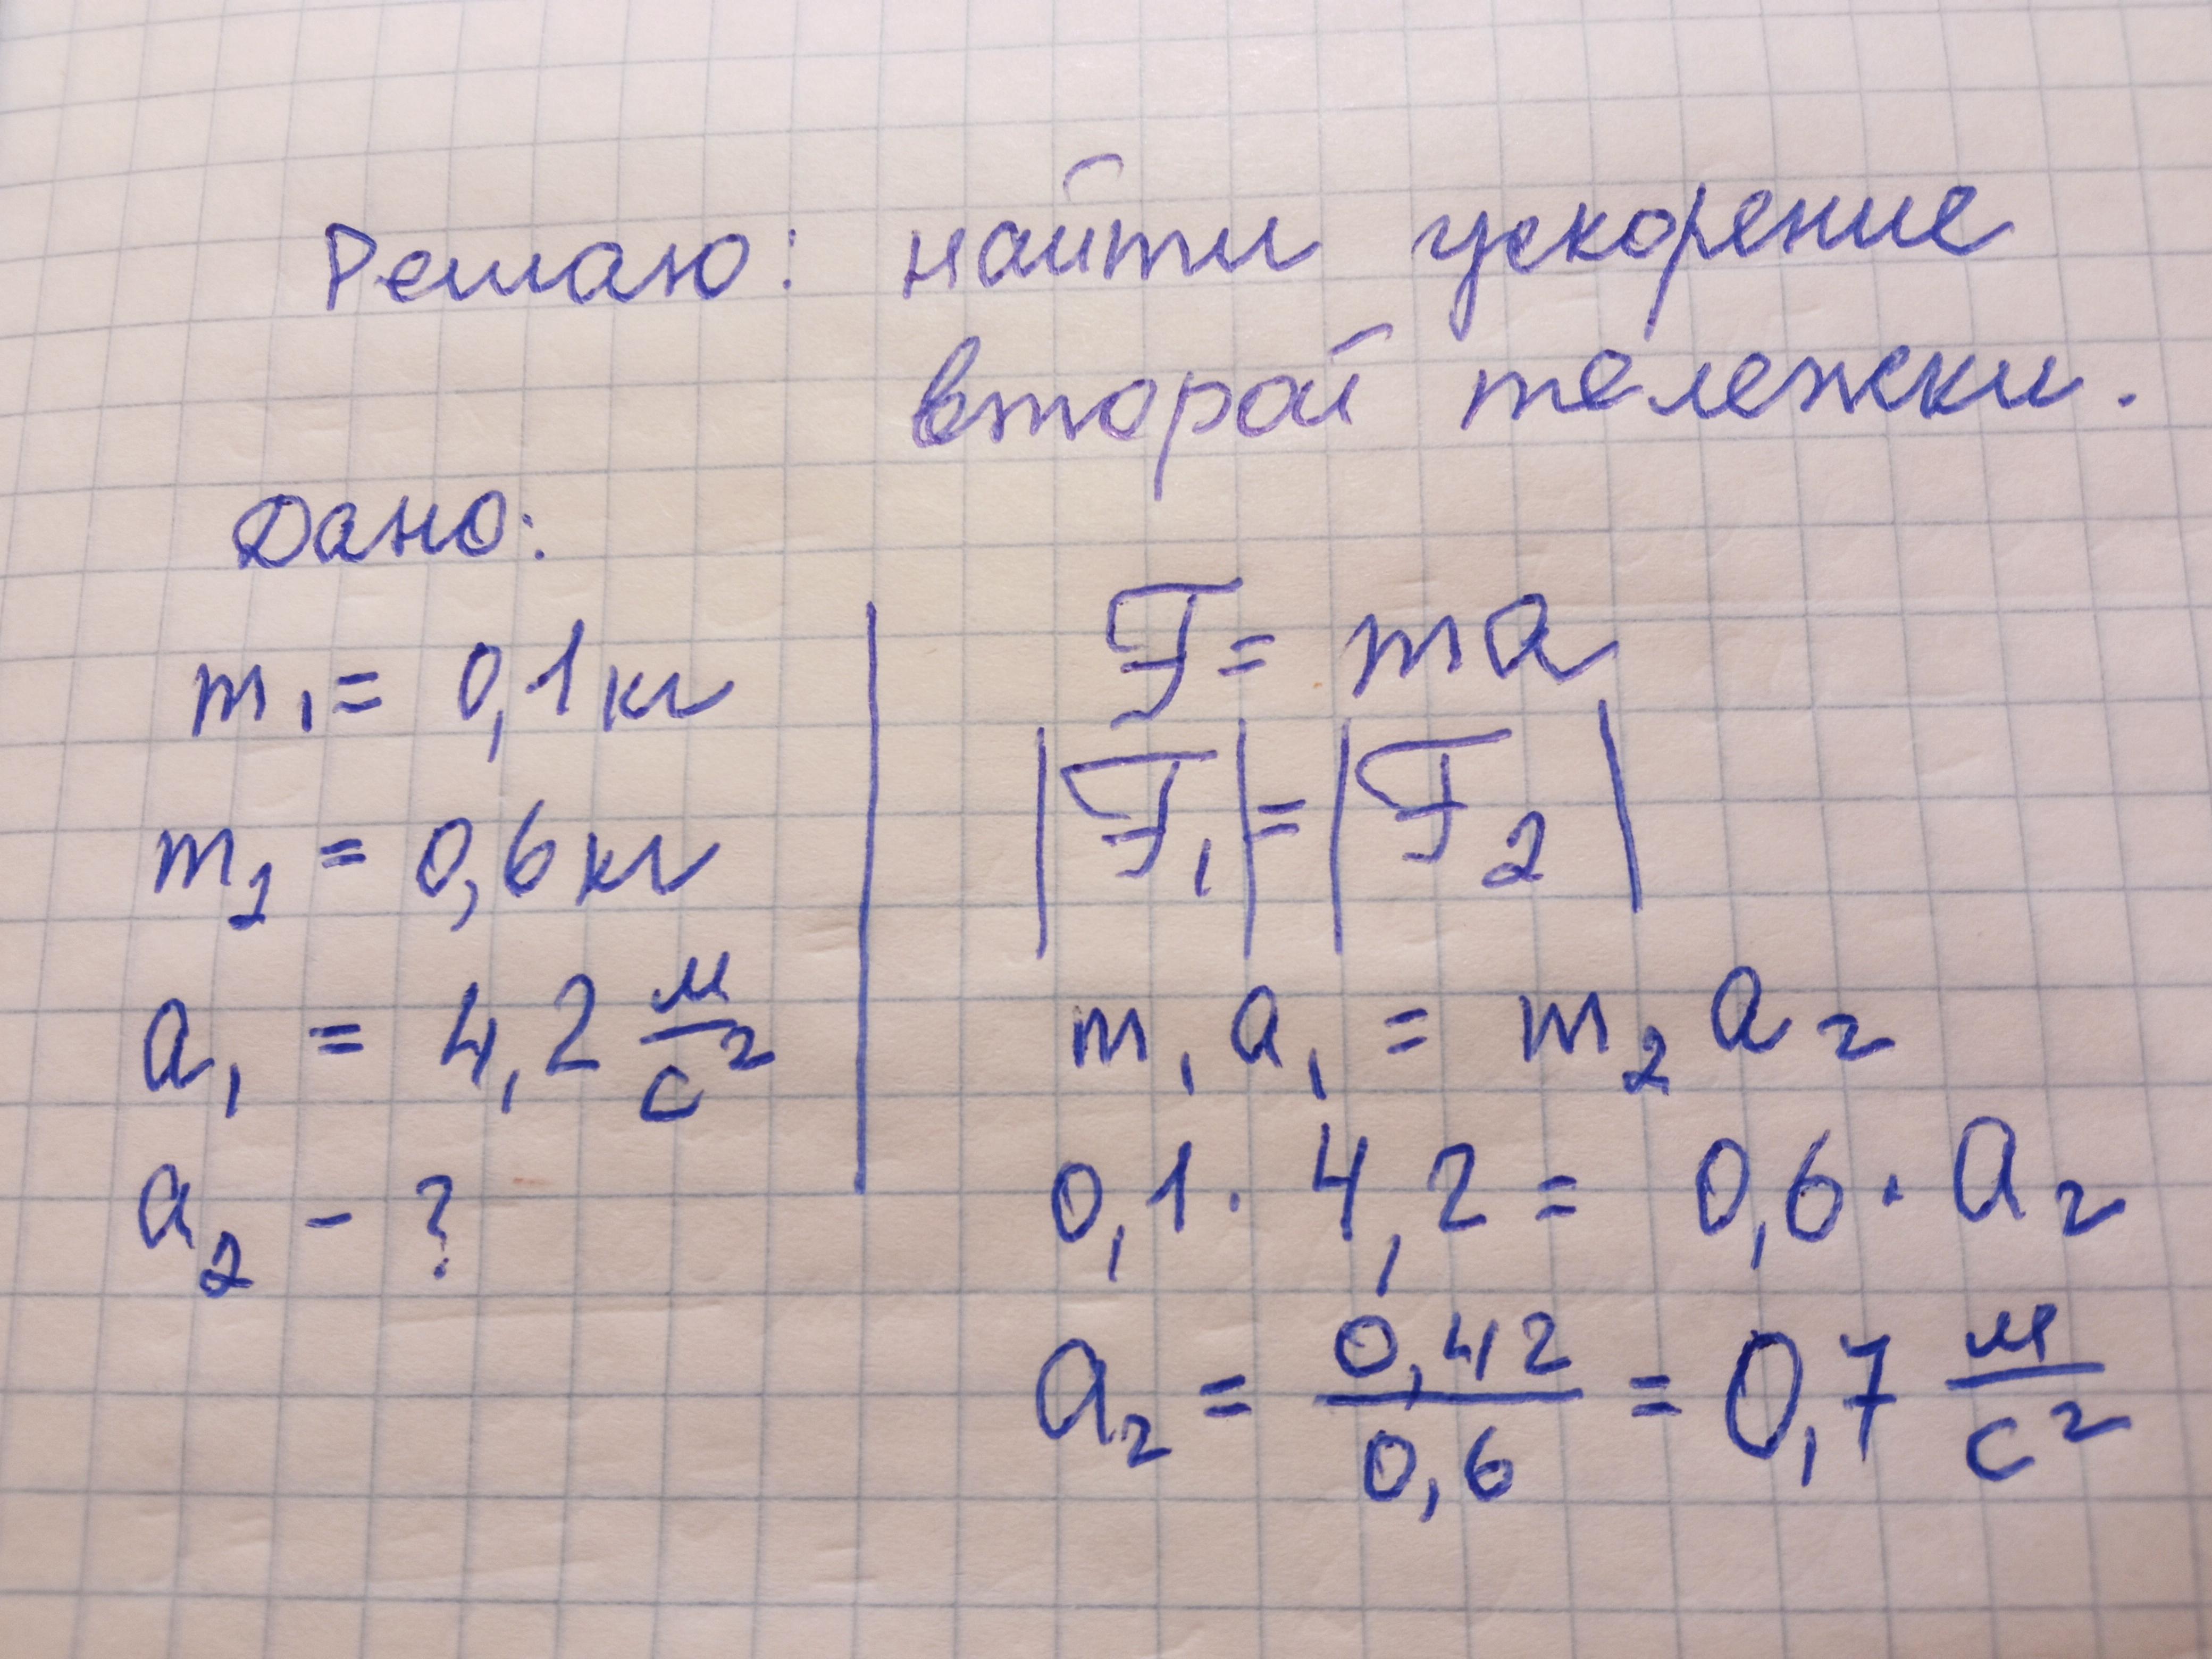 Решаю: найти ускорение
второй тележки.
Дано:
m₁ = 0,1 кг
m₂ = 0,6 кг
a₁ = 4,2 м/с²
a₂ - ?
F = ma
|F₁| = |F₂|
m₁a₁ = m₂a₂
0,1 · 4,2 = 0,6 · a₂
a₂ = 0,42/0,6 = 0,7 м/с²